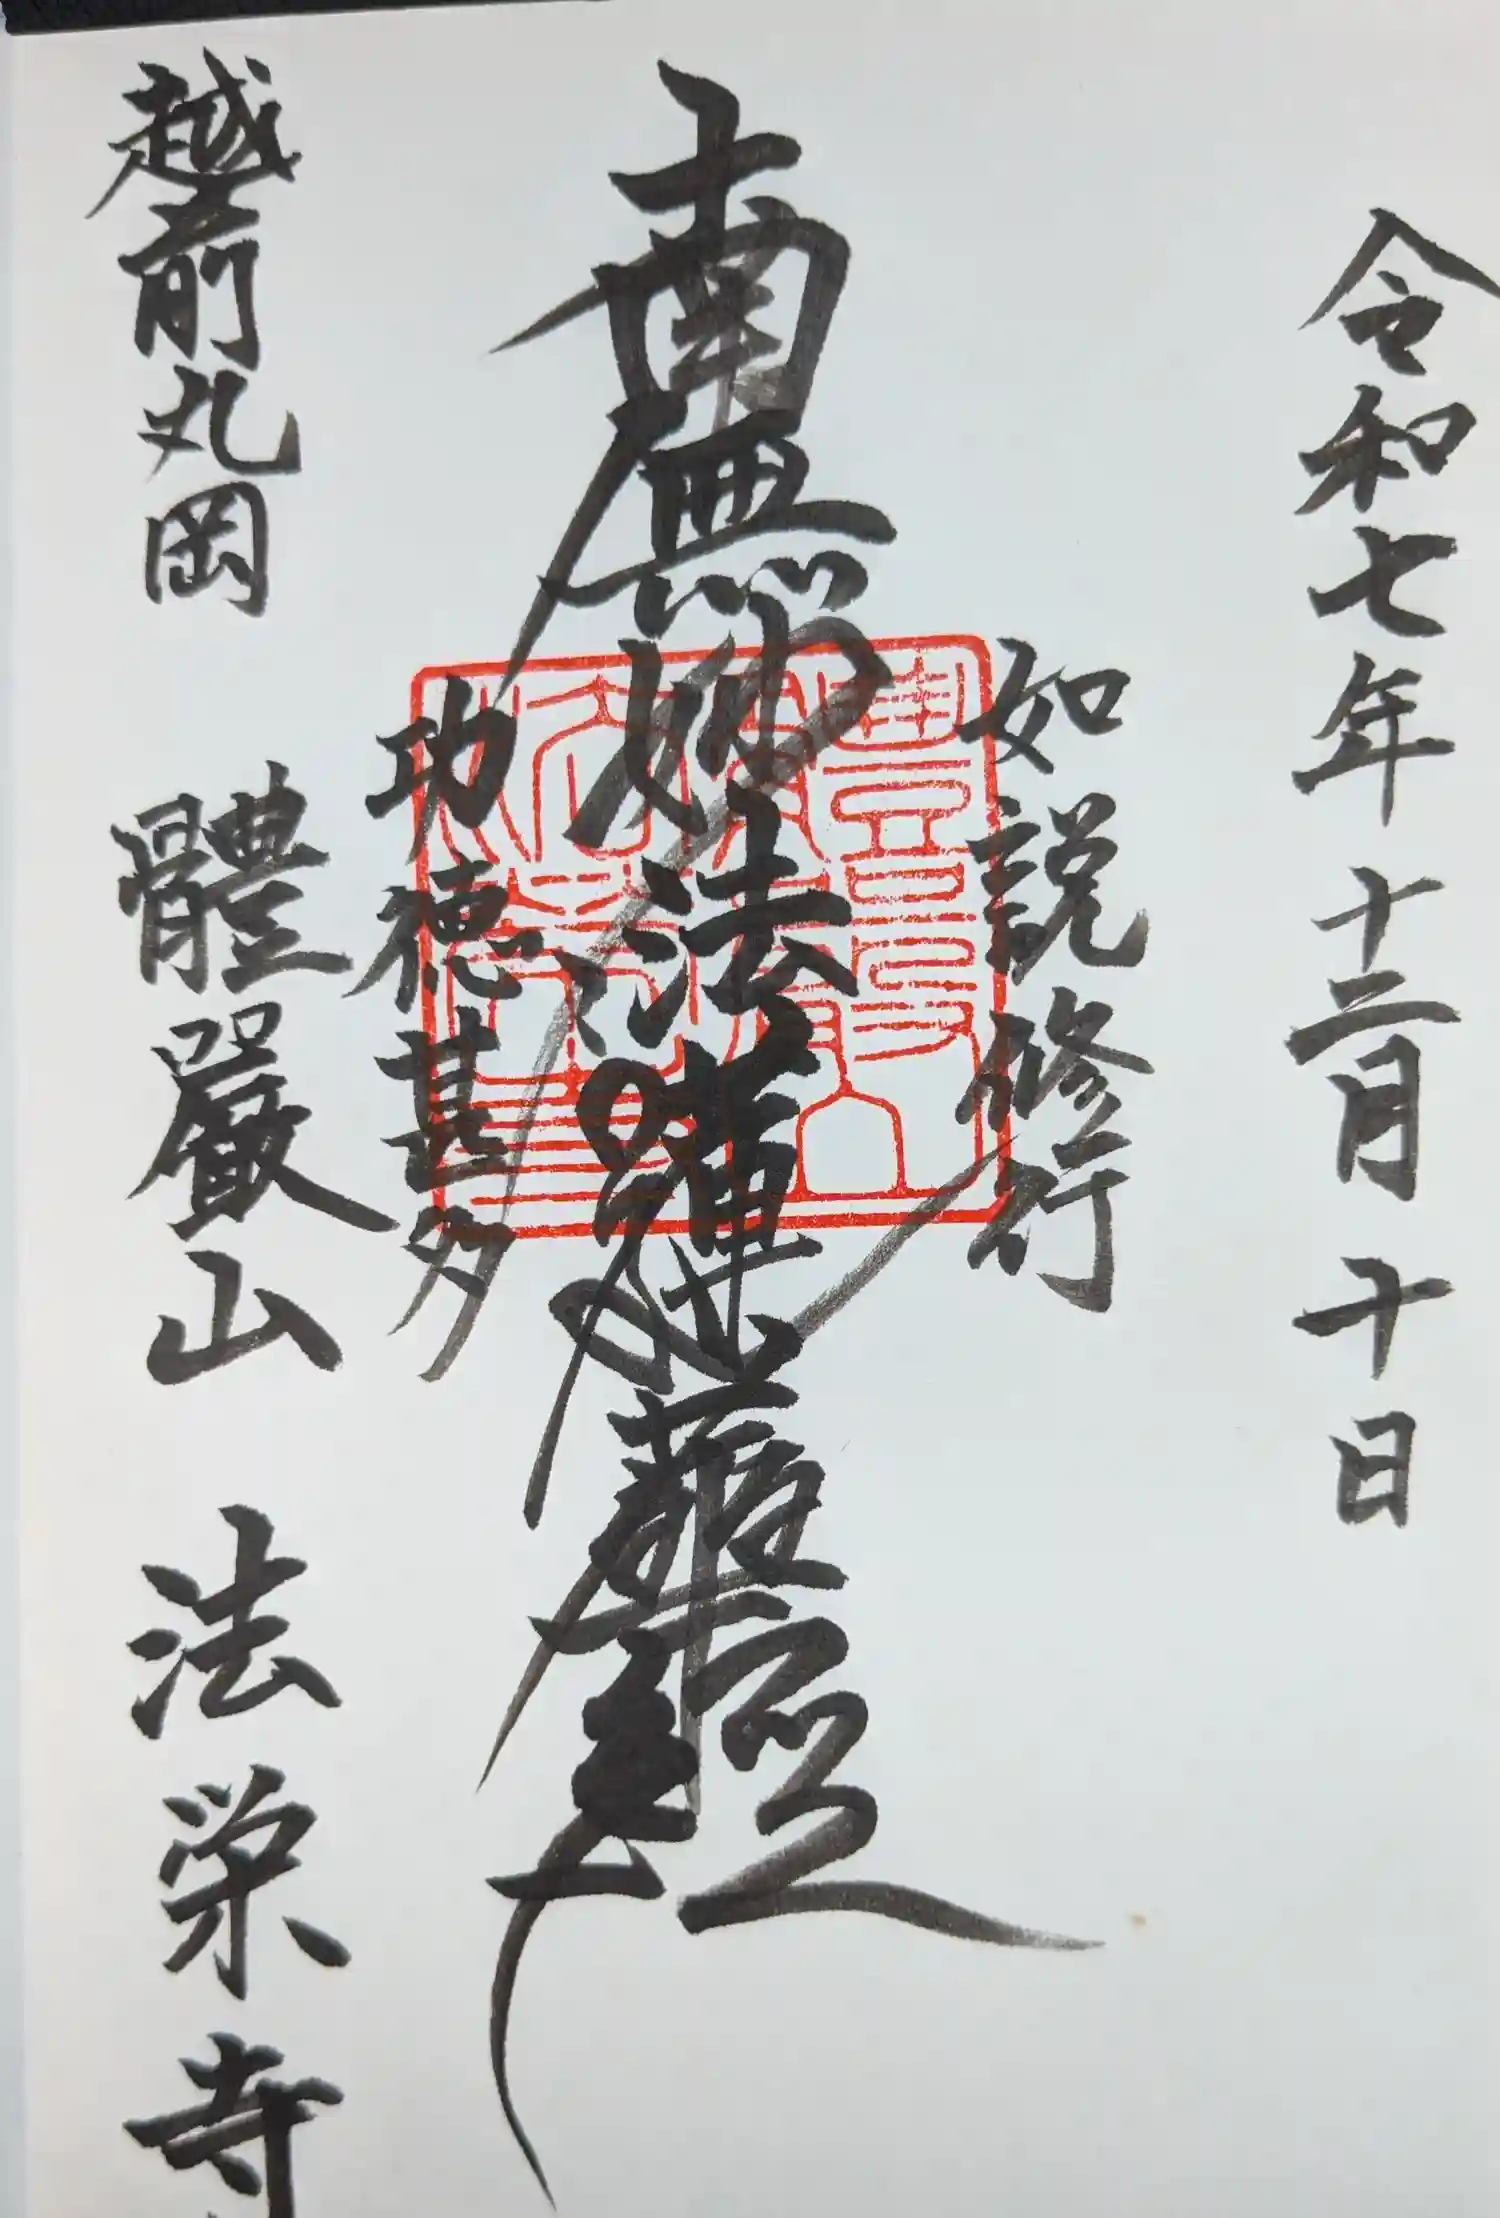 令和七年十二月十日
如説修行
南無妙法蓮華経
功徳甚多
越前丸岡 體嚴山 法栄寺